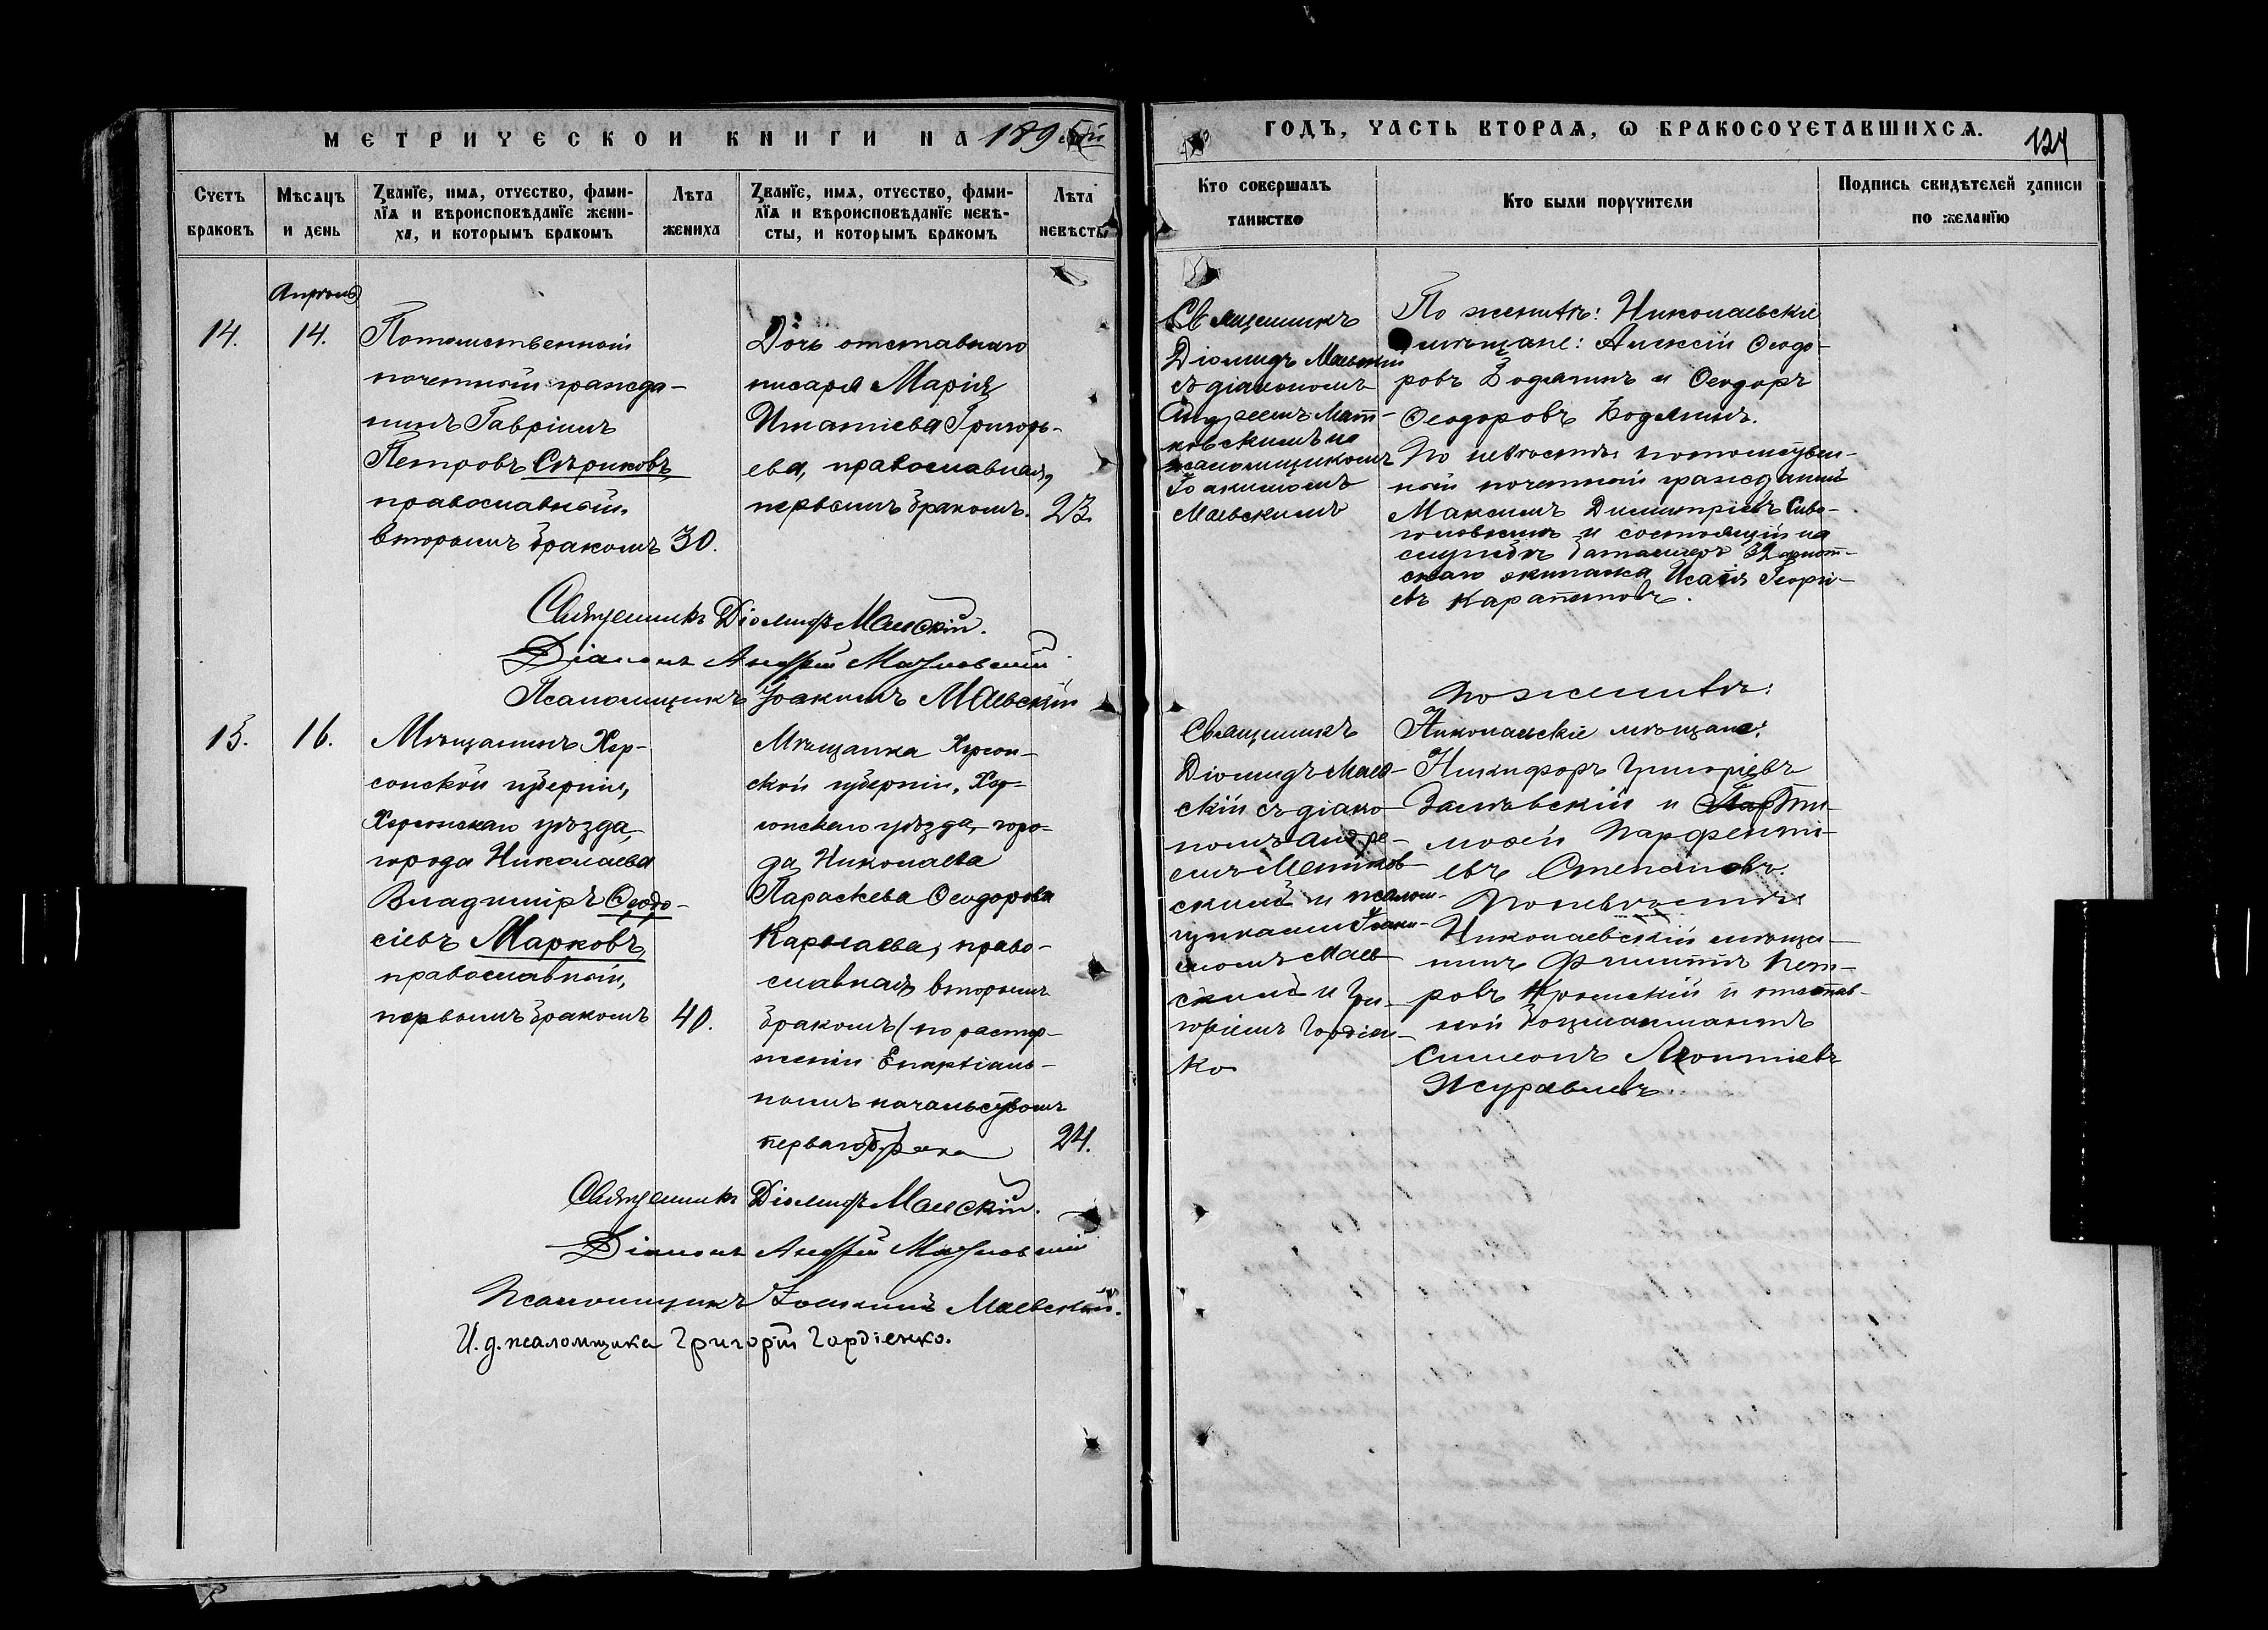 МЕТРИЧЕСКОЙ КНИГИ НА 1895й
ГОДЪ, ЧАСТЬ ВТОРАѦ, Ѡ БРАКОСОЧЕТАВШИХСѦ.
124
Счетъ браковъ
Мѣсяцъ и день
Званїе, имѧ, отчество, фами-
лїѧ и вѣроисповѣданїе жени-
ха, и которымъ бракомъ
Лѣта жениха
Званїе, имѧ, отчество, фами-
лїѧ и вѣроисповѣданїе невѣ-
сты, и которымъ бракомъ
Лѣта невѣсты
Кто совершалъ
таинство
Кто были поручители
Подпись свидѣтелей записи
по желанїю
Апрѣль
14.
14.
Потомственный
почетный гражда-
нинъ Гавріилъ
Петровъ Сѣриковъ,
православный,
вторымъ бракомъ
30.
Дочь отставнаго
писаря Марія
Игнатіева Григорь-
ева, православная,
первымъ бракомъ.
23.
Священникъ
Діомидъ Маевскій
съ діакономъ
Андреемъ Мат-
ковскимъ и
псаломщикомъ
Іоакимомъ
Маевскимъ
По женихѣ: Николаевскіе
мѣщане: Алексій Ѳеодо-
ровъ Бодянинъ и Ѳеодоръ
Ѳеодоровъ Бодянинъ.
По невѣстѣ потомствен-
ный почетный гражданинъ
Максимъ Димитріевъ
и состоящій на
службѣ баталеръ 32 флот-
скаго экипажа Исаія Георгі-
евъ Карапетовъ.
Священникъ Діомидъ Маевскій.
Діаконъ Андрей Матковскій
Псаломщикъ Іоакимъ Маевскій
15.
16.
Мѣщанинъ Хер-
сонской губерніи,
Херсонскаго уѣзда,
города Николаева
Владиміръ Ѳеодо-
сіевъ Марковъ,
православный,
первымъ бракомъ
40.
Мѣщанка Херсон-
ской губерніи, Хер-
сонскаго уѣзда, горо-
да Николаева
Параскева Ѳеодорова
православная вторымъ
бракомъ (по растор-
женіи Епархіаль-
нымъ начальствомъ
перваго брака
24.
Священникъ
Діомидъ Маев-
скій съ діако-
номъ Андре-
емъ Матков-
скимъ и псалом-
щиками Іоаки-
момъ Маев-
скимъ и Гри-
горіемъ Гордіен-
ко
По женихѣ:
Николаевскіе мѣщане:
Никифоръ Григоріевъ
Залѣвскій и Ти-
моѳей Парфенті-
евъ Степановъ.
По невѣстѣ:
Николаевскій мѣща-
нинъ Филиппъ Пет-
ровъ Кромскій и отстав-
ной боцманматъ
Симеонъ Леонтіевъ
Журавлевъ.
Священникъ Діомидъ Маевскій.
Діаконъ Андрей Матковскій
Псаломщикъ Іоакимъ Маевскій.
И. д. псаломщика Григорій Гордіенко.